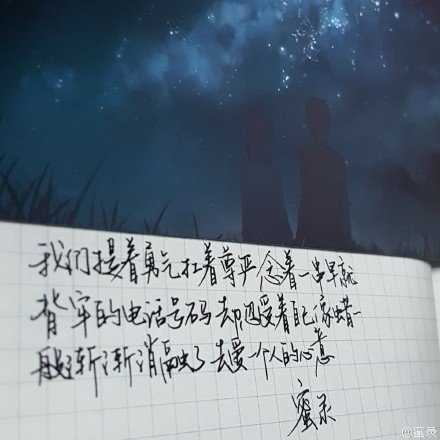 我们提着勇气扛着尊严念着一串早就
背牢的电话号码却忍受着自己像蜡一
般逐渐消融了去爱一个人的心意
蜜录
@蜜录